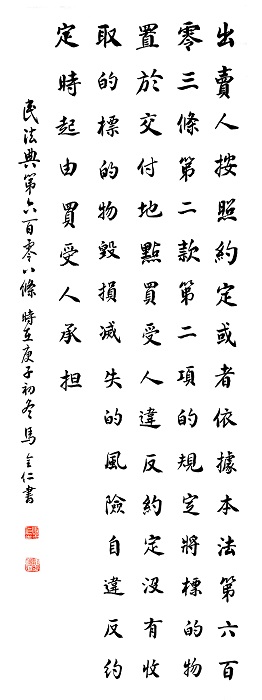 出賣人按照約定或者依據本法第六百
零三條第二款第二項的規定將標的物
置於交付地點買受人違反約定沒有收
取的標的物毀損滅失的風險自違反約
定時起由買受人承担
民法典第六百零八條 時在庚子初冬 馬全仁書